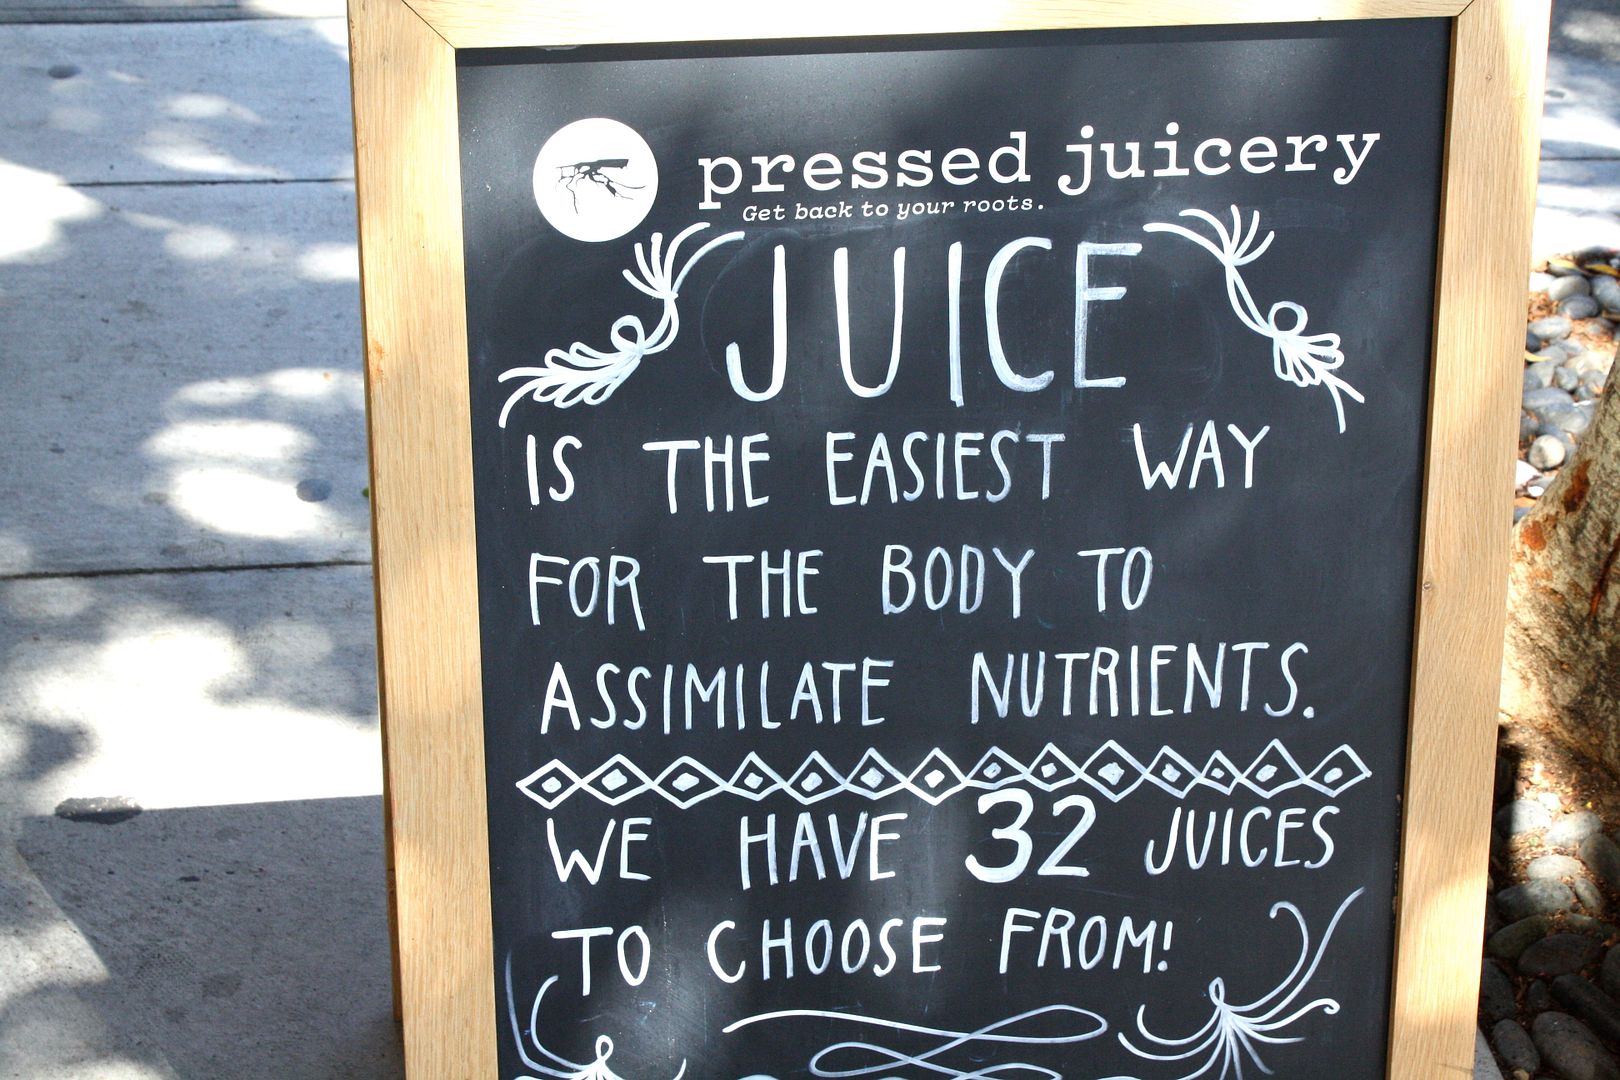 pressed juicery
Get back to your roots.
JUICE
IS THE EASIEST WAY
FOR THE BODY TO
ASSIMILATE NUTRIENTS.
WE HAVE 32 JUICES
TO CHOOSE FROM!